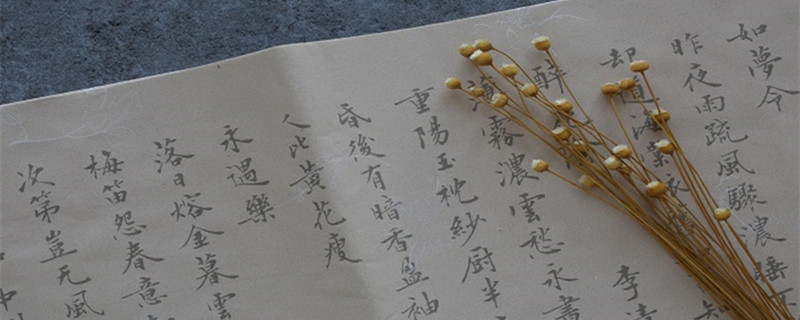 如夢令
昨夜雨疏風驟濃睡不
却道海棠依舊知
醉 李清
薄霧濃雲愁永晝
重陽玉枕紗厨半
昏後有暗香盈袖
人比黃花瘦
永遇樂
落日熔金暮雲
梅笛怨春意
次第豈无風
中